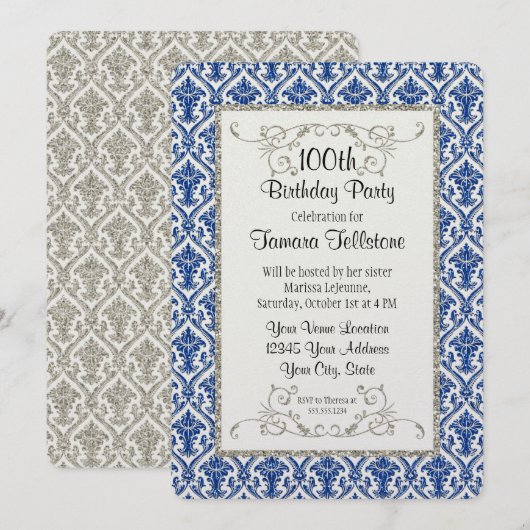 100th
Birthday Party
Celebration for
Tamara Tellstone
Will be hosted by her sister
Marissa LeJeunne,
Saturday, October 1st at 4 PM
Your Venue Location
12345 Your Address
Your City, State
RSVP to Theresa at
555.555.1234